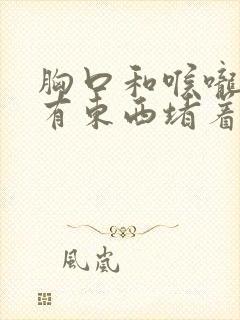 胸口和喉嚨
有東西堵着
風嵐